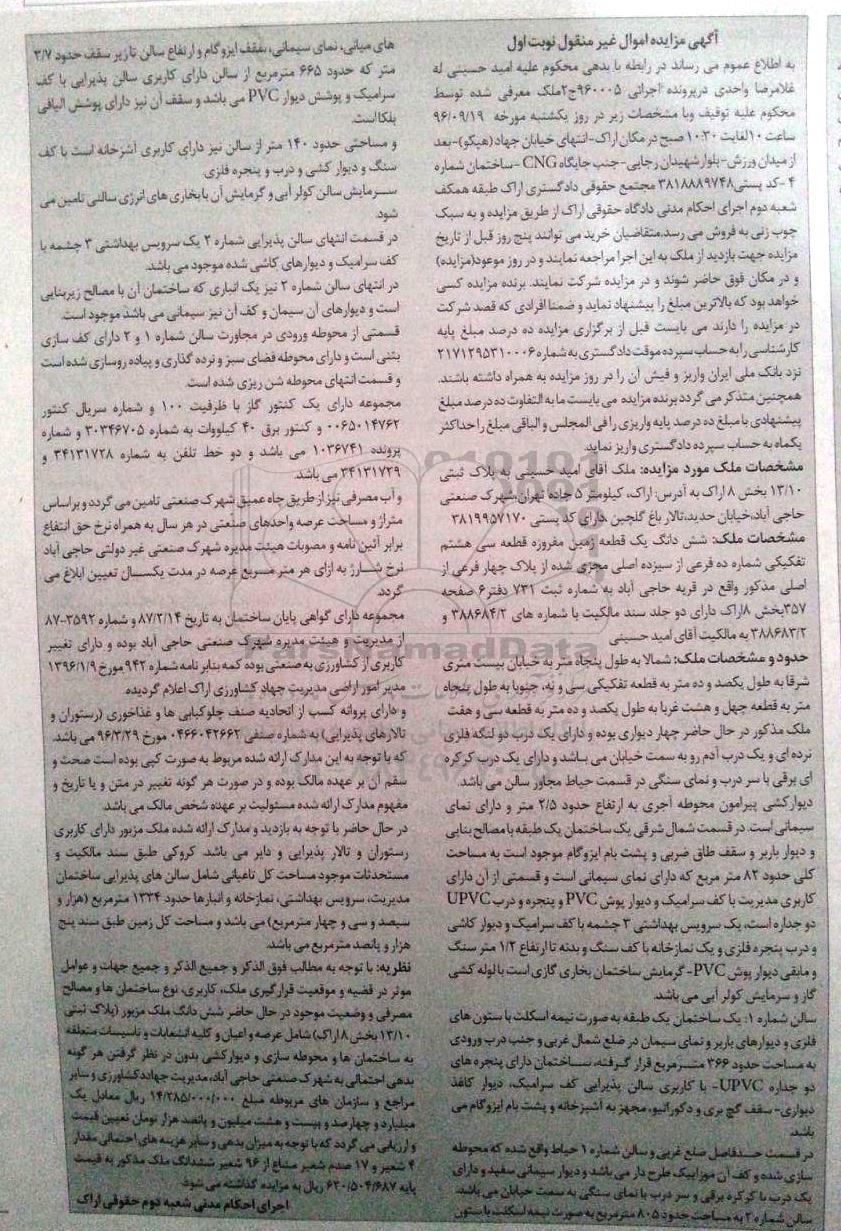 آگهی مزایده اموال غیر منقول نوبت اول
به اطلاع عموم می رساند در رابطه با بدهی محکوم علیه امید حسینی له
غلامرضا واحدی درپرونده اجرائی ۹۶۰۰۰۵ج۲ملک معرفی شده توسط
محکوم علیه توقیف وبا مشخصات زیر در روز یکشنبه مورخه ۹۶/۰۹/۱۹
ساعت ۱۰لغایت ۱۰:۳۰ صبح در مکان اراک-انتهای خیابان جهاد(هپکو)-بعد
از میدان ورزش-بلوار شهیدان رجایی-جنب جایگاه CNG -ساختمان شماره
۴ -کد پستی۳۸۱۸۸۸۹۷۴۸ مجتمع حقوقی دادگستری اراک طبقه همکف
شعبه دوم اجرای احکام مدنی دادگاه حقوقی اراک از طریق مزایده و به سبک
چوب زنی به فروش می رسد.متقاضیان خرید می توانند پنج روز قبل از تاریخ
مزایده جهت بازدید از ملک به این اجرا مراجعه نمایند و در روز موعود(مزایده)
و در مکان فوق حاضر شوند و در مزایده شرکت نمایند. برنده مزایده کسی
خواهد بود که بالاترین مبلغ را پیشنهاد نماید و ضمنا افرادی که قصد شرکت
در مزایده را دارند می بایست قبل از برگزاری مزایده ده درصد مبلغ پایه
کارشناسی را به حساب سپرده موقت دادگستری به شماره ۲۱۷۱۲۹۵۳۱۰۰۰۶
نزد بانک ملی ایران واریز و فیش آن را در روز مزایده به همراه داشته باشند.
همچنین متذکر می گردد برنده مزایده می بایست ما به التفاوت ده درصد مبلغ
پیشنهادی با مبلغ ده درصد پایه واریزی را فی المجلس و الباقی مبلغ را حداکثر
یکماه به حساب سپرده دادگستری واریز نماید.
مشخصات ملک مورد مزایده: ملک آقای امید حسینی به پلاک ثبتی
۱۳/۱۰ بخش ۸ اراک به آدرس: اراک، کیلومتر ۵ جاده تهران،شهرک صنعتی
حاجی آباد،خیابان حدید،تالار باغ گلچین ،دارای کد پستی ۳۸۱۹۹۵۷۱۷۰
مشخصات ملک: شش دانگ یک قطعه زمین مفروزه قطعه سی هشتم
تفکیکی شماره ده فرعی از سیزده اصلی مجزی شده از پلاک چهار فرعی از
اصلی مذکور واقع در قریه حاجی آباد به شماره ثبت ۷۳۱ دفتر۶ صفحه
۳۵۷بخش ۸اراک دارای دو جلد سند مالکیت با شماره های ۳۸۸۶۸۴/۲ و
۳۸۸۶۸۳/۲ به مالکیت آقای امید حسینی
حدود و مشخصات ملک: شمالا به طول پنجاه متر به خیابان بیست متری
شرقا به طول یکصد و ده متر به قطعه تفکیکی سی و نه، جنوبا به طول پنجاه
متر به قطعه چهل و هشت غربا به طول یکصد و ده متر به قطعه سی و هفت
ملک مذکور در حال حاضر چهار دیواری بوده و دارای یک درب دو لنگه فلزی
نرده ای و یک درب آدم رو به سمت خیابان می باشد و دارای یک درب کرکره
ای برقی با سر درب و نمای سنگی در قسمت حیاط مجاور سالن می باشد.
دیوارکشی پیرامون محوطه آجری به ارتفاع حدود ۲/۵ متر و دارای نمای
سیمانی است. در قسمت شمال شرقی یک ساختمان یک طبقه با مصالح بنایی
و دیوار باربر و سقف طاق ضربی و پشت بام ایزوگام موجود است به مساحت
کلی حدود ۸۲ متر مربع که دارای نمای سیمانی است و قسمتی از آن دارای
کاربری مدیریت با کف سرامیک و دیوار پوش PVC و پنجره و درب UPVC
دو جداره است، یک سرویس بهداشتی ۳ چشمه با کف سرامیک و دیوار کاشی
و درب پنجره فلزی و یک نمازخانه با کف سنگ و بدنه تا ارتفاع ۱/۲ متر سنگ
و مابقی دیوار پوش PVC- گرمایش ساختمان بخاری گازی است با لوله کشی
گاز و سرمایش کولر آبی می باشد.
سالن شماره ۱: یک ساختمان یک طبقه به صورت نیمه اسکلت با ستون های
فلزی و دیوارهای باربر و نمای سیمان در ضلع شمال غربی و جنب درب ورودی
به مساحت حدود ۳۶۶ مترمربع قرار گرفته، ساختمان دارای پنجره های
دو جداره UPVC- با کاربری سالن پذیرایی کف سرامیک، دیوار کاغذ
دیواری- سقف گچ بری و دکوراتیو، مجهز به آشپزخانه و پشت بام ایزوگام می
باشد.
در قسمت حدفاصل ضلع غربی و سالن شماره ۱ حیاط واقع شده که محوطه
سازی شده و کف آن موزاییک طرح دار می باشد و دیوار سیمانی سفید و دارای
یک درب با کرکره برقی و سر درب با نمای سنگی به سمت خیابان می باشد.
سالن شماره ۲ به مساحت حدود ۸۰۵ مترمربع به صورت نیمه اسکلت با ستون
های میانی، نمای سیمانی، سقف ایزوگام و ارتفاع سالن تا زیر سقف حدود ۳/۷
متر که حدود ۶۶۵ مترمربع از سالن دارای کاربری سالن پذیرایی با کف
سرامیک و پوشش دیوار PVC می باشد و سقف آن نیز دارای پوشش الیافی
بلکا است.
و مساحتی حدود ۱۴۰ متر از سالن نیز دارای کاربری آشپزخانه است با کف
سنگ و دیوار کشی و درب و پنجره فلزی.
سرمایش سالن کولر آبی و گرمایش آن با بخاری های انرژی سالنی تامین می
شود.
در قسمت انتهای سالن پذیرایی شماره ۲ یک سرویس بهداشتی ۳ چشمه با
کف سرامیک و دیوارهای کاشی شده موجود می باشد.
در انتهای سالن شماره ۲ نیز یک انباری که ساختمان آن با مصالح زیربنایی
است و دیوارهای آن سیمان و کف آن نیز سیمانی می باشد موجود است.
قسمتی از محوطه ورودی در مجاورت سالن شماره ۱ و ۲ دارای کف سازی
بتنی است و دارای محوطه فضای سبز و نرده گذاری و پیاده روسازی شده است
و قسمت انتهای محوطه شن ریزی شده است.
مجموعه دارای یک کنتور گاز با ظرفیت ۱۰۰ و شماره سریال کنتور
۰۰۶۵۰۱۴۷۶۲ و کنتور برق ۴۰ کیلووات به شماره ۳۰۳۴۶۷۰۵ و شماره
پرونده ۱۰۳۶۷۴۱ می باشد و دو خط تلفن به شماره ۳۴۱۳۱۷۲۸ و
۳۴۱۳۱۷۲۹ می باشد.
و آب مصرفی نیز از طریق چاه عمیق شهرک صنعتی تامین می گردد و براساس
متراژ و مساحت عرصه واحدهای صنعتی در هر سال به همراه نرخ حق انتفاع
برابر آئین نامه و مصوبات هیئت مدیره شهرک صنعتی غیر دولتی حاجی آباد
نرخ شارژ به ازای هر متر مربع عرصه در مدت یکسال تعیین ابلاغ می
گردد.
مجموعه دارای گواهی پایان ساختمان به تاریخ ۸۷/۲/۱۴ و شماره ۳۵۹۲-۸۷
از مدیریت و هیئت مدیره شهرک صنعتی حاجی آباد بوده و دارای تغییر
کاربری از کشاورزی به صنعتی بوده کمه بنابر نامه شماره ۹۴۲ مورخ ۱۳۹۶/۱/۹
مدیر امور اراضی مدیریت جهاد کشاورزی اراک اعلام گردیده.
و دارای پروانه کسب از اتحادیه صنف چلوکبابی ها و غذاخوری (رستوران و
تالارهای پذیرایی) به شماره صنفی ۰۴۶۶۰۴۲۶۶۲ مورخ ۹۶/۳/۲۹ می باشد.
که با توجه به این مدارک ارائه شده مربوط به صورت کپی بوده است صحت و
سقم آن بر عهده مالک بوده و در صورت هر گونه تغییر در متن و یا تاریخ و
مفهوم مدارک ارائه شده مسئولیت بر عهده شخص مالک می باشد.
در حال حاضر با توجه به بازدید و مدارک ارائه شده ملک مزبور دارای کاربری
رستوران و تالار پذیرایی و دایر می باشد. کروکی طبق سند مالکیت و
مستحدثات موجود مساحت کل تاعیانی شامل سالن های پذیرایی ساختمان
مدیریت، سرویس بهداشتی، نمازخانه و انبارها حدود ۱۳۳۴ مترمربع (هزار و
سیصد و سی و چهار مترمربع) می باشد و مساحت کل زمین طبق سند پنج
هزار و پانصد مترمربع می باشد.
نظریه: با توجه به مطالب فوق الذکر و جمیع الذکر و جمیع جهات و عوامل
موثر در قضیه و موقعیت قرار گیری ملک، کاربری، نوع ساختمان ها و مصالح
مصرفی و وضعیت موجود در حال حاضر شش دانگ ملک مزبور (پلاک ثبتی
۱۳/۱۰ بخش ۸ اراک) شامل عرصه و اعیان و کلیه انشعابات و تاسیسات متعلقه
به ساختمان ها و محوطه سازی و دیوارکشی بدون در نظر گرفتن هر گونه
بدهی احتمالی به شهرک صنعتی حاجی آباد، مدیریت جهاد کشاورزی و سایر
مراجع و سازمان های مربوطه مبلغ ۱۴/۲۸۵/۰۰۰/۰۰۰ ریال معادل یک
میلیارد و چهارصد و بیست و هشت میلیون و پانصد هزار تومان تعیین قیمت
و ارزیابی می گردد که با توجه به میزان بدهی و سایر هزینه های احتمالی مقدار
۴ شعیر و ۱۷ صدم شعیر مشاع از ۹۶ شعیر ششدانگ ملک مذکور به قیمت
پایه ۶۲۰/۵۰۴/۶۸۷ ریال به مزایده گذاشته می شود.
اجرای احکام مدنی شعبه دوم حقوقی اراک
ParsNamadData